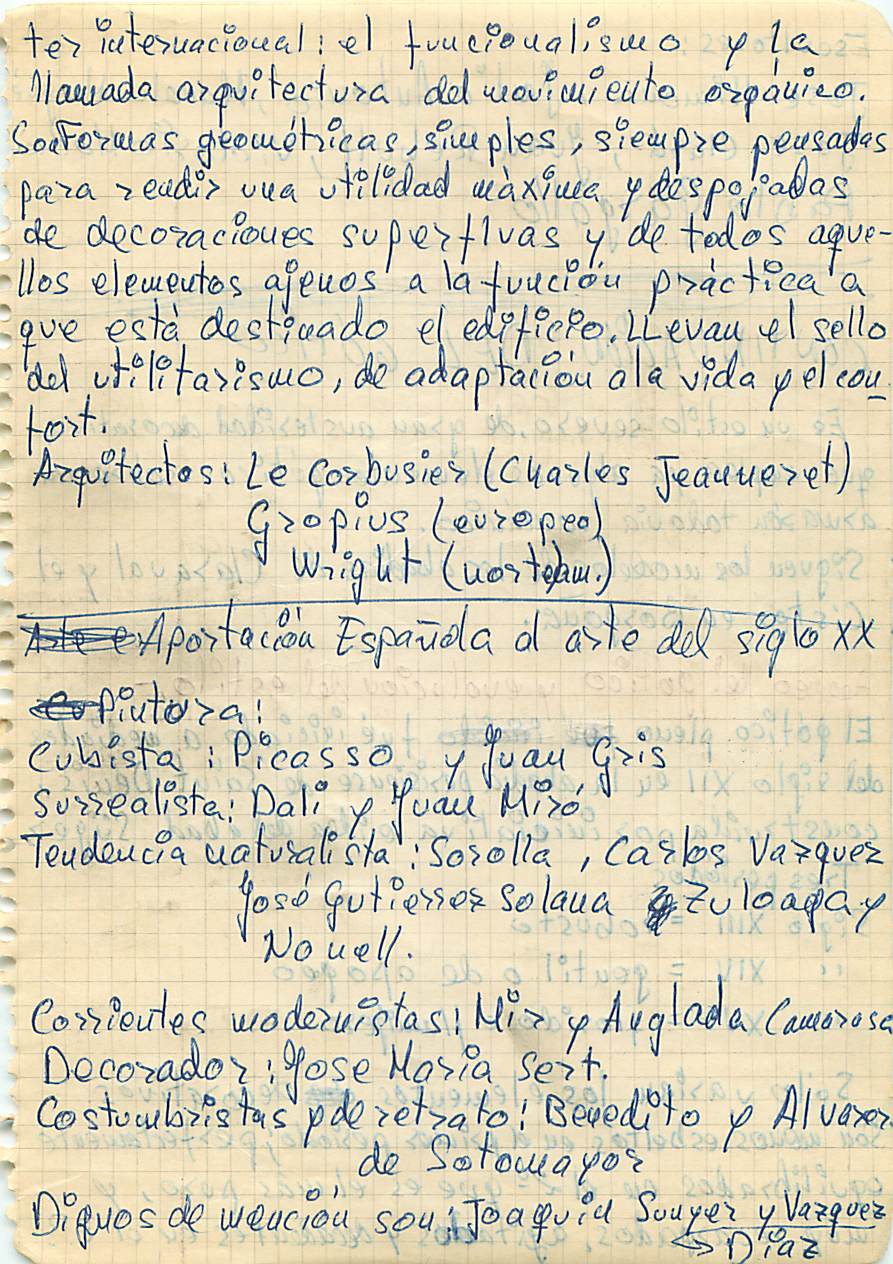 ter internacional: el funcionalismo y la
llamada arquitectura del movimiento orgánico.
Son Formas geométricas, simples, siempre pensadas
para rendir una utilidad màxima y despojadas
de decoraciones superfluas y de todos aque-
llos elementos ajenos a la función pràctica a
que está destinado el edificio. LLevan el sello
del utilitarismo, de adaptación a la vida y el con
fort.
Arquitectos: Le Corbusier (Charles Jeanneret)
Gropius (europeo)
Wright (norteam.)
Aportación Española al arte del siglo XX
Pintora:
Cubista: Picasso y Juan Gris
Surrealista: Dali y Juan Miró
Tendencia naturalista: Sorolla, Carlos Vazquez
José Gutierrez Solana Zuloaga y
Nonell.
Corrientes modernistas: Mir y Anglada Camarasa
Decorador: Jose Maria Sert.
Costumbristas y de retrato: Benedito y Alvarez
de Sotomayor
Dignos de mención son: Joaquin Sunyer y Vazquez
Díaz